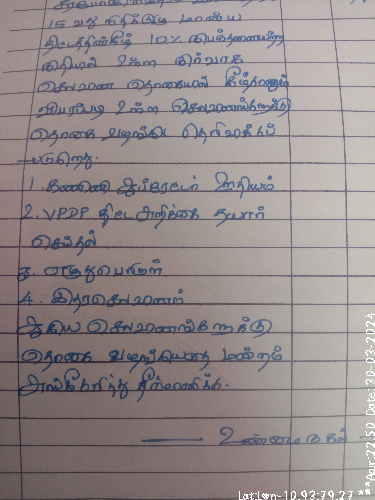 15 வது நிதிக்குழு மான்ய
திட்டத்தின்கீழ் 10%
நிதியில் உள்ள நிர்வாக
செலவின தொகையில் கீழ்காணும்
விபரப்படி உள்ள செலவினங்களுக்கு
தொகை வழங்க தெரிவிக்கப்
படுகிறது.
1. கணினி ஆப்ரேட்டர் ஊதியம்
2. VPDP திட்ட அறிக்கை தயார்
செய்தல்
3. எழுதுபொருள்
4. இதரசெலவினம்
ஆகிய செலவினங்களுக்கு
தொகை வழங்கியதை மன்றம்
அங்கீகரித்து தீர்மானிக்க.
— உண்மை நகல் —
Lat:Lon-10.93:79.27 ***Apr:22.50 Date: 30-03-2024